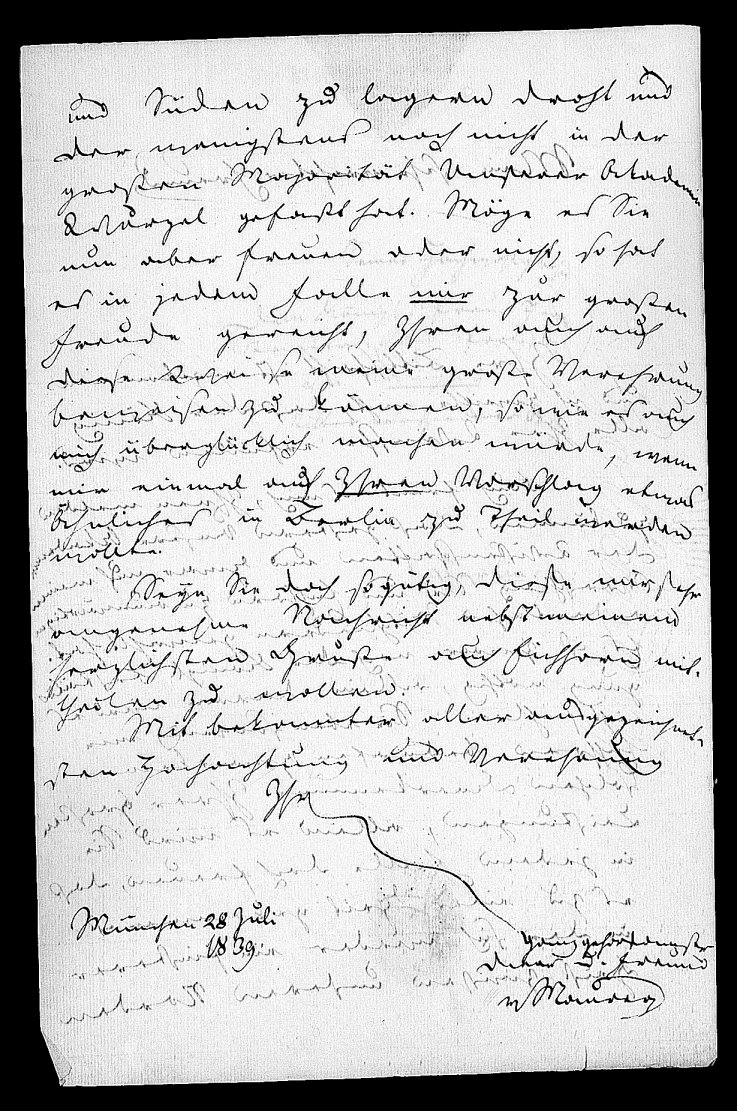 und Süden zu lagern droht und
der wenigstens noch nicht in der
großen Majorität Unserer Akademie
Wurzel gefaßt hat. Möge es Sie
nun aber freuen oder nicht, so hat
es in jedem Falle mir zur großen
Freude gereicht, Ihnen auch auf
diese Weise meine große Verehrung
beweisen zu können, sowie es auch
mich überglücklich machen würde, wenn
mir einmal auf Ihren Vorschlag etwas
Ähnliches in Berlin zu Theil werden
wollte.
Seyn Sie doch so gütig, diese mir sehr
angenehme Nachricht nebst meinem
herzlichsten Gruße auch Eichhorn mit-
theilen zu wollen.
Mit bekannter aller ausgezeichnet-
sten Hochachtung und Verehrung
Ihr
München 28 Juli
1839.
ganz gehorsamster
Diener u. Freund
v Maurer